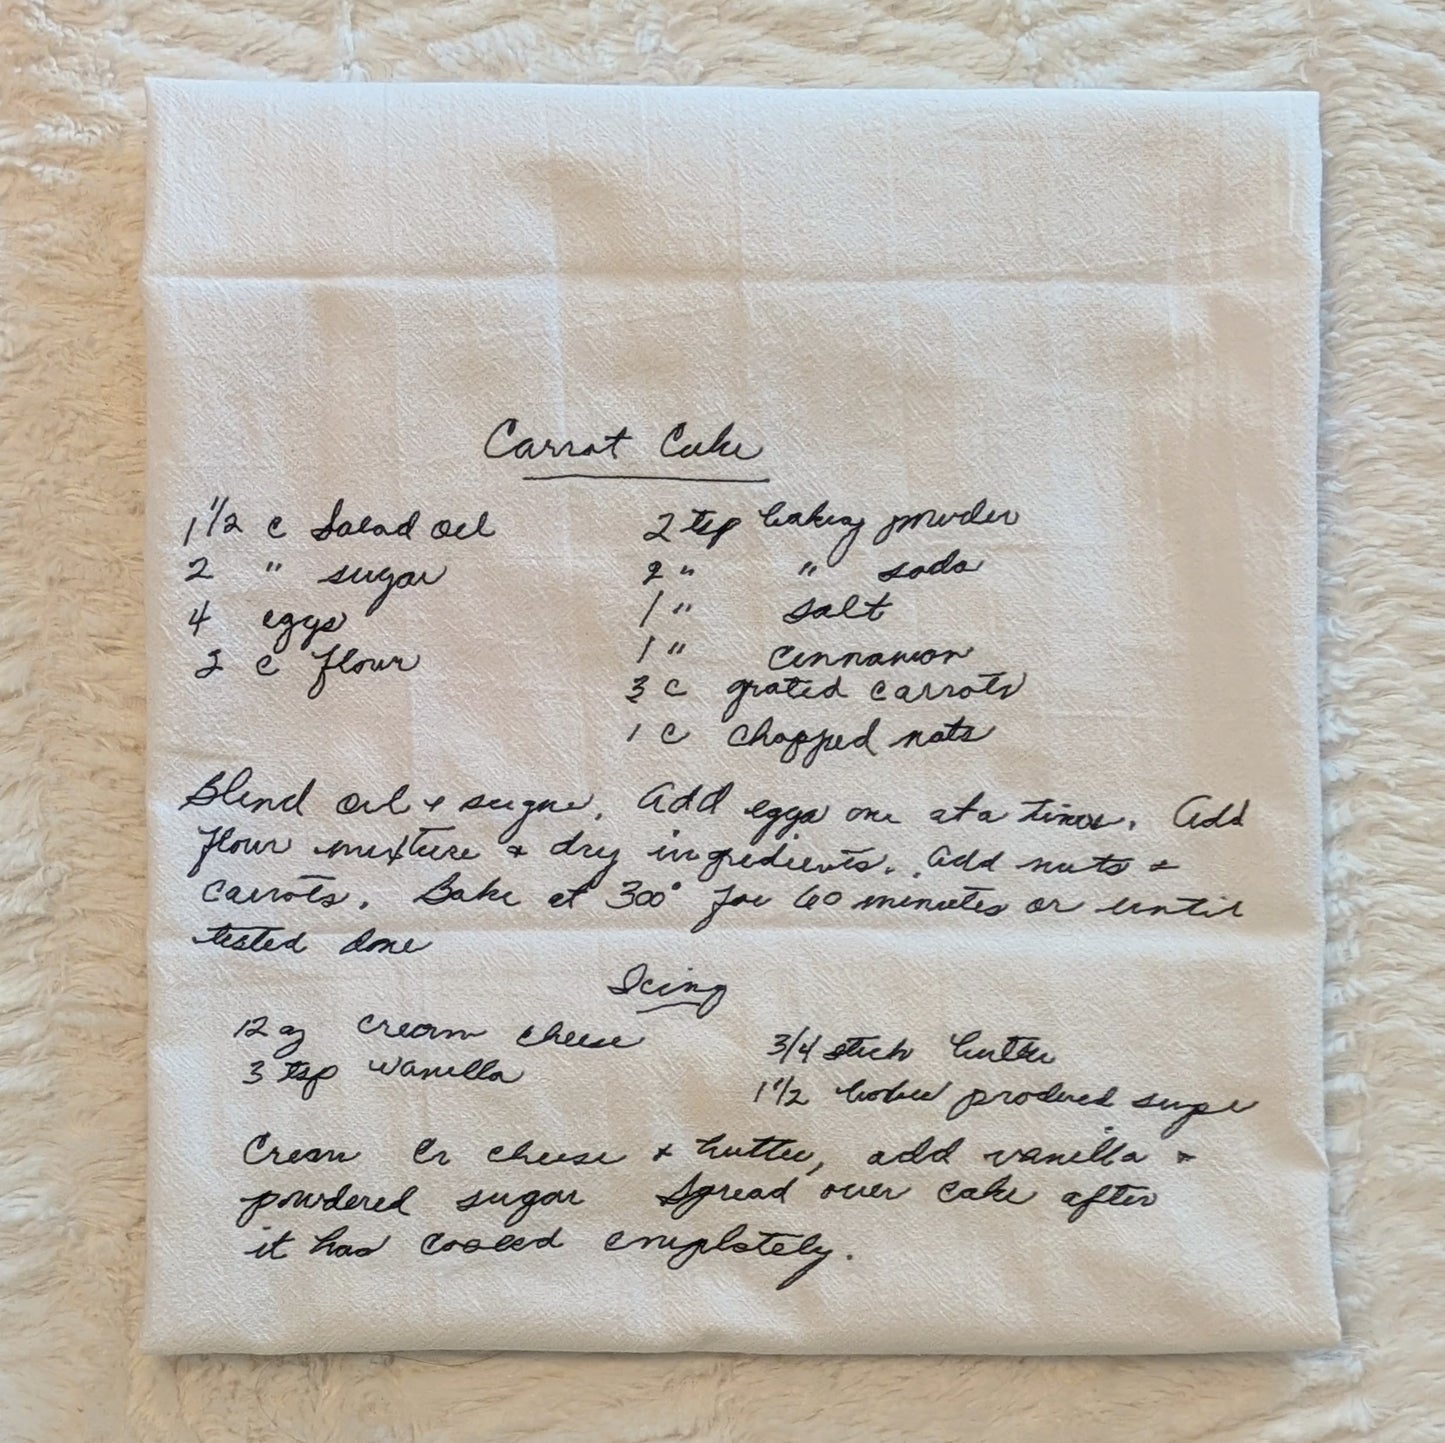 Carrot Cake
1 1/2 c Salad oil
2 " sugar
4 eggs
2 c flour
2 tsp baking powder
2 " " soda
1 " salt
1 " cinnamon
3 c grated carrots
1 c chopped nuts
Blend oil & sugar. Add eggs one at a time. Add
flour mixture & dry ingredients. Add nuts &
carrots. Bake at 300° for 60 minutes or until
tested done
Icing
12 oz cream cheese
3 tsp vanilla
3/4 stick butter
1 1/2 boxes powdered sugar
Cream cr cheese & butter, add vanilla &
powdered sugar Spread over cake after
it has cooled completely.